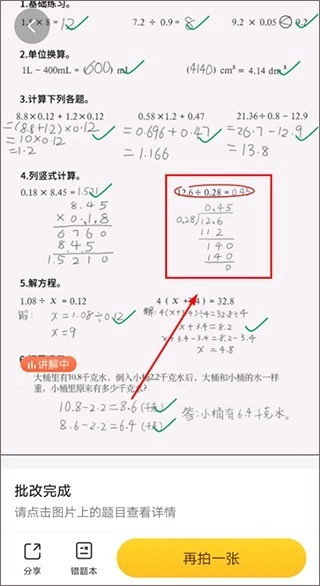 1.基础练习。
8 = 12 7.2 ÷ 0.9 = 8 9.2 × 0.05 0.2
2.单位换算。
1L - 400mL = (600) mL (4140) cm³ = 4.14 dm³
3.计算下列各题。
8.8×0.12 + 1.2×0.12 0.58×1.2 + 0.47 21.36÷0.8 - 12.9
=(8.8+1.2)×0.12 =0.696+0.47 =26.7-12.9
=10×0.12 =1.166 =13.8
=1.2
4.列竖式计算。
0.18 × 8.45 = 1.521 12.6 ÷ 0.28 = 0.45
8.45 0.45
× 0.18 0.28 12.6
6760 112
845 140
1.5210 140
0
5.解方程。
1.08 ÷ x = 0.12 4(x+3.4) = 32.8
解: x=1.08÷0.12 解: 4(x+3.4)÷4=32.8÷4
x=9 x+3.4=8.2
x+3.4-3.4=8.2-3.4
x=4.8
讲解中
大桶里有10.8千克水，倒入小桶2.2千克水后，大桶和小桶的水一样
重，小桶里原来有多少千克水?
10.8-2.2=8.6(千克)
8.6-2.2=6.4(千克) 答:小桶有6.4千克水。
批改完成
请点击图片上的题目查看详情
分享 错题本 再拍一张